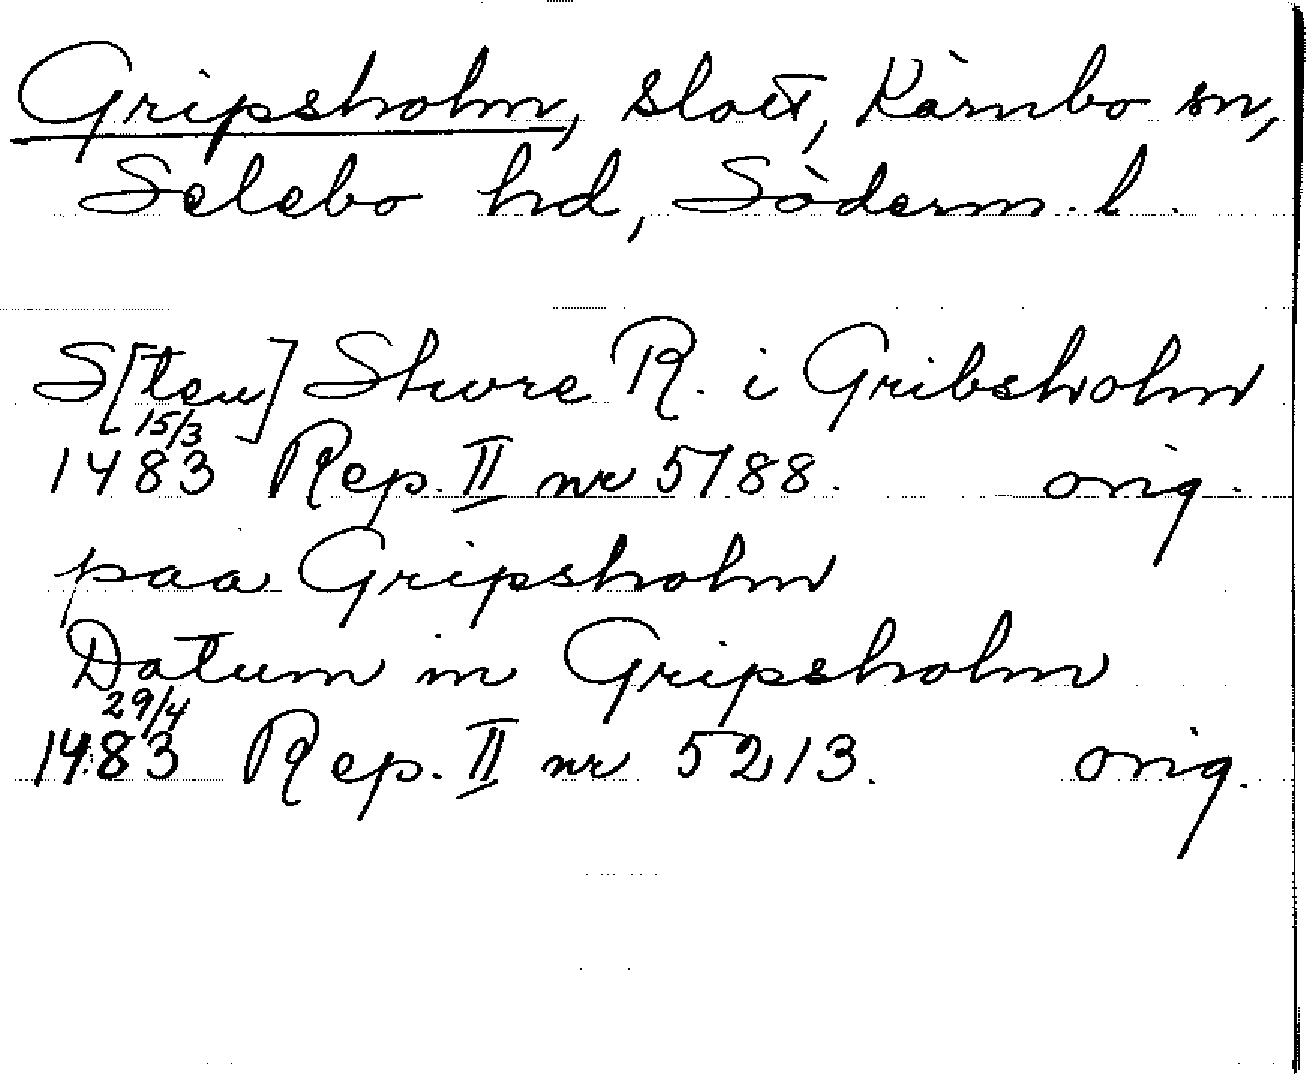 Gripsholm, slott, Kärnbo sn,
Selebo hd, Söderm. l.
S[ten] Sture R. i Gribsholm
15/3
1483 Rep. II nr 5188. orig.
paa Gripsholm
Datum in Gripsholm
29/4
1483 Rep. II nr 5213. orig.